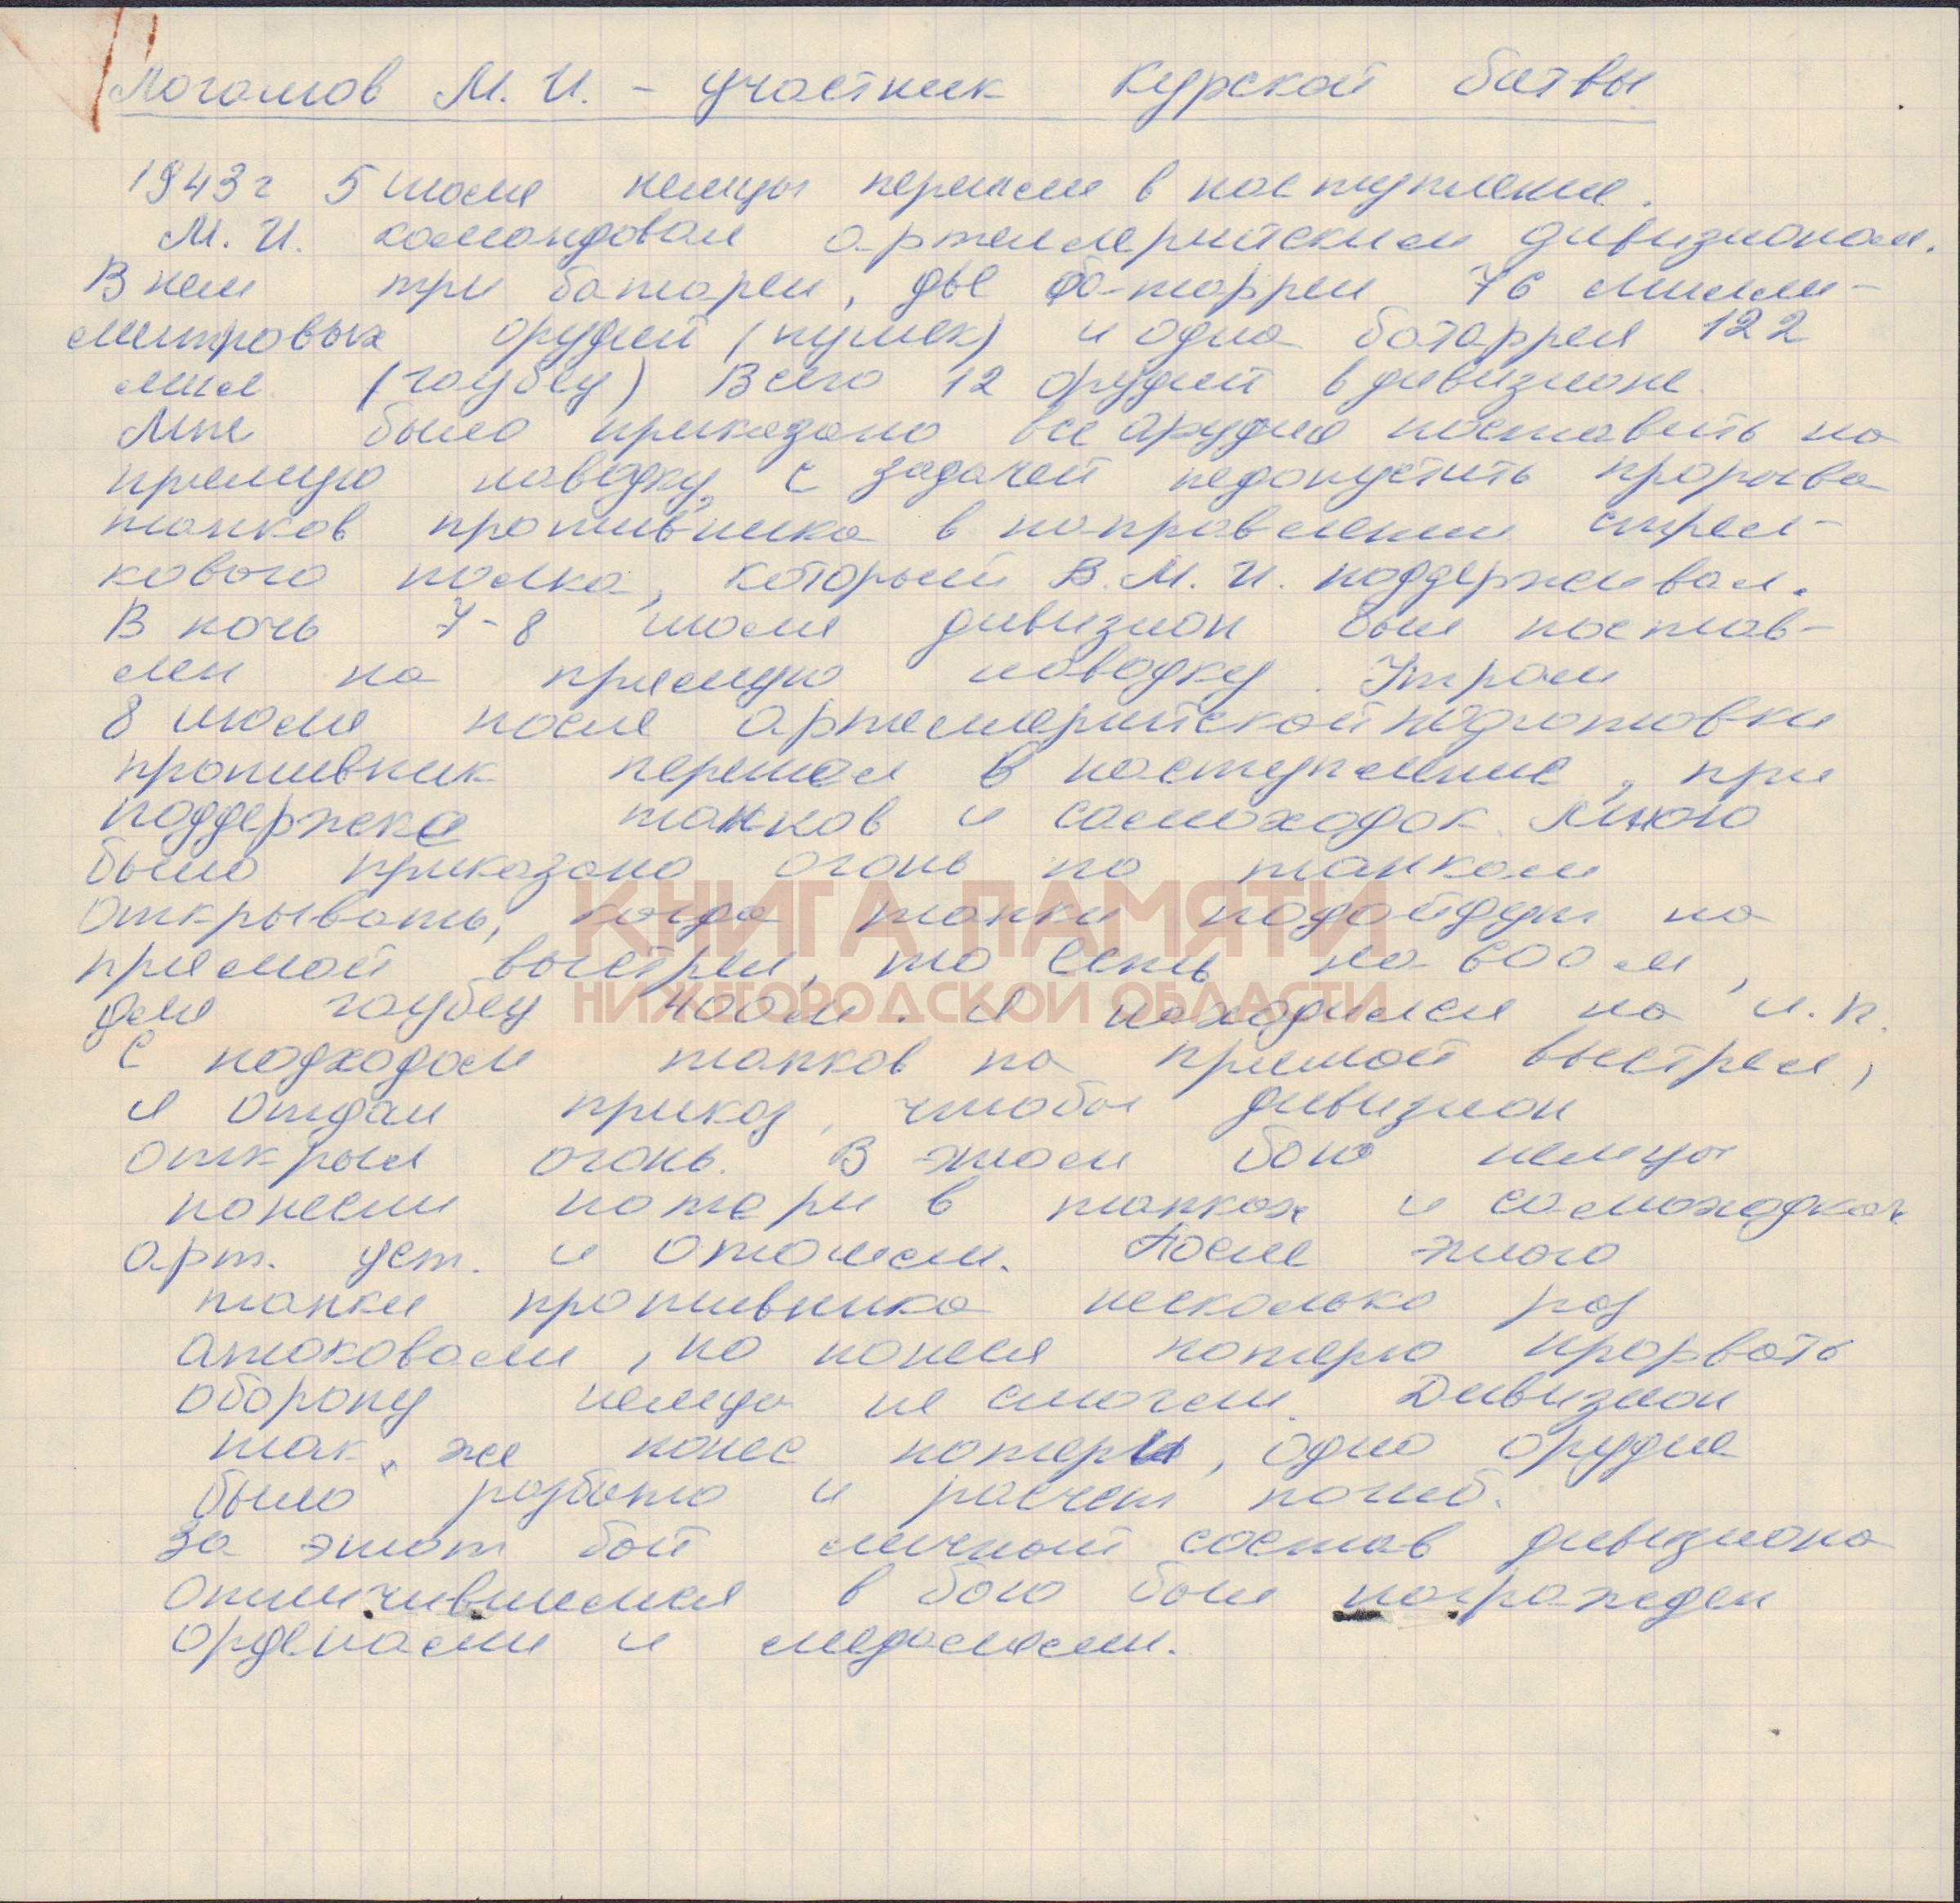 Логашов М. И. - участник Курской битвы
1943 г 5 июля немцы перешли в наступление.
М. И. командовал артиллерийским дивизионом.
В нем три батареи, две ба-таррей 76 милли-
метровых орудий (пушек) и одна батаррея 122
мил. (гаубец) Всего 12 орудий в дивизионе.
Мне было приказано все арудие поставить на
прямую наводку, с задачей недопустить прорыва
танков противника в направлении стрел-
кового полка, который В. М. И. поддерживал.
В ночь 7-8 июля дивизион был постав-
лен на прямую наводку. Утром
8 июля после артиллерийской подготовки
противник перешел в наступление, при
поддержке танков и самоходок. Мною
было приказано огонь по танкам
КНИГА ПАМЯТИ
открывать, когда танки подойдут на
прямой выстрел, то есть на 600 м,
НИЖЕГОРОДСКОЙ ОБЛАСТИ
для гаубец 400 м. Я находился на н.п.
С подходом танков на прямой выстрел,
я отдал приказ, чтобы дивизион
открыл огонь. В этом бою немцы
понесли потери в танках и самоходках
арт. уст. и отошли. После этого
танки противника несколько раз
атаковали, но понеся потерю прорвать
оборону немцы не смогли. Дивизион
так же понес потери, одно орудие
было разбито и расчет погиб.
За этот бой личный состав дивизиона
отличившиеся в бою был награжден
орденами и медалями.